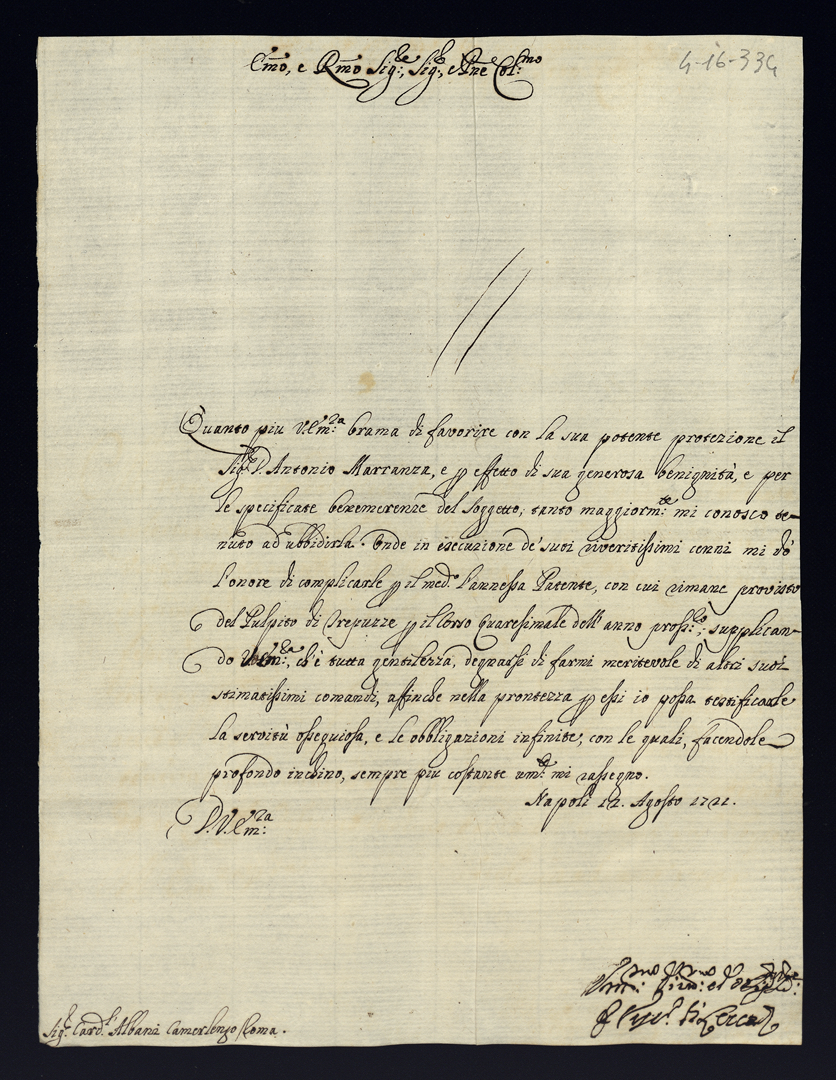 Em̃o, e Rm̃o Sig:re, Sig:, e Pñe Col:mo
4-16-334
Quanto piu V: Em:za brama di favorire con la sua potente protezione il
Sig:r D. Antonio Marranza, e ꝑ effetto di sua generosa benignità, e per
le specificate benemerenze del Soggetto; tanto maggiorm:te mi conosco te-
nuto ad ubbidirla. Onde in esecuzione de' suoi riveritissimi cenni mi dò
l'onore di complicarle ꝑ il med:o l'annessa Patente, con cui rimane provisto
del Pulpito di Trepuzze ꝑ il Corso Quaresimale dell'anno pross:o; supplican-
do V. Em:za, ch'è tutta gentilezza, degnarsi di farmi meritevole di altri suoi
stimatissimi comandi, affinche nella prontezza ꝑ essi io possa testificarle
la servitù ossequiosa, e le obbligazioni infinite, con le quali, facendole
profondo inchino, sempre piu costante um:e mi rassegno.
Napoli 12. Agosto 1721.
D. V. Em:za
Sig:r Card:l Albani Camerlengo Roma.